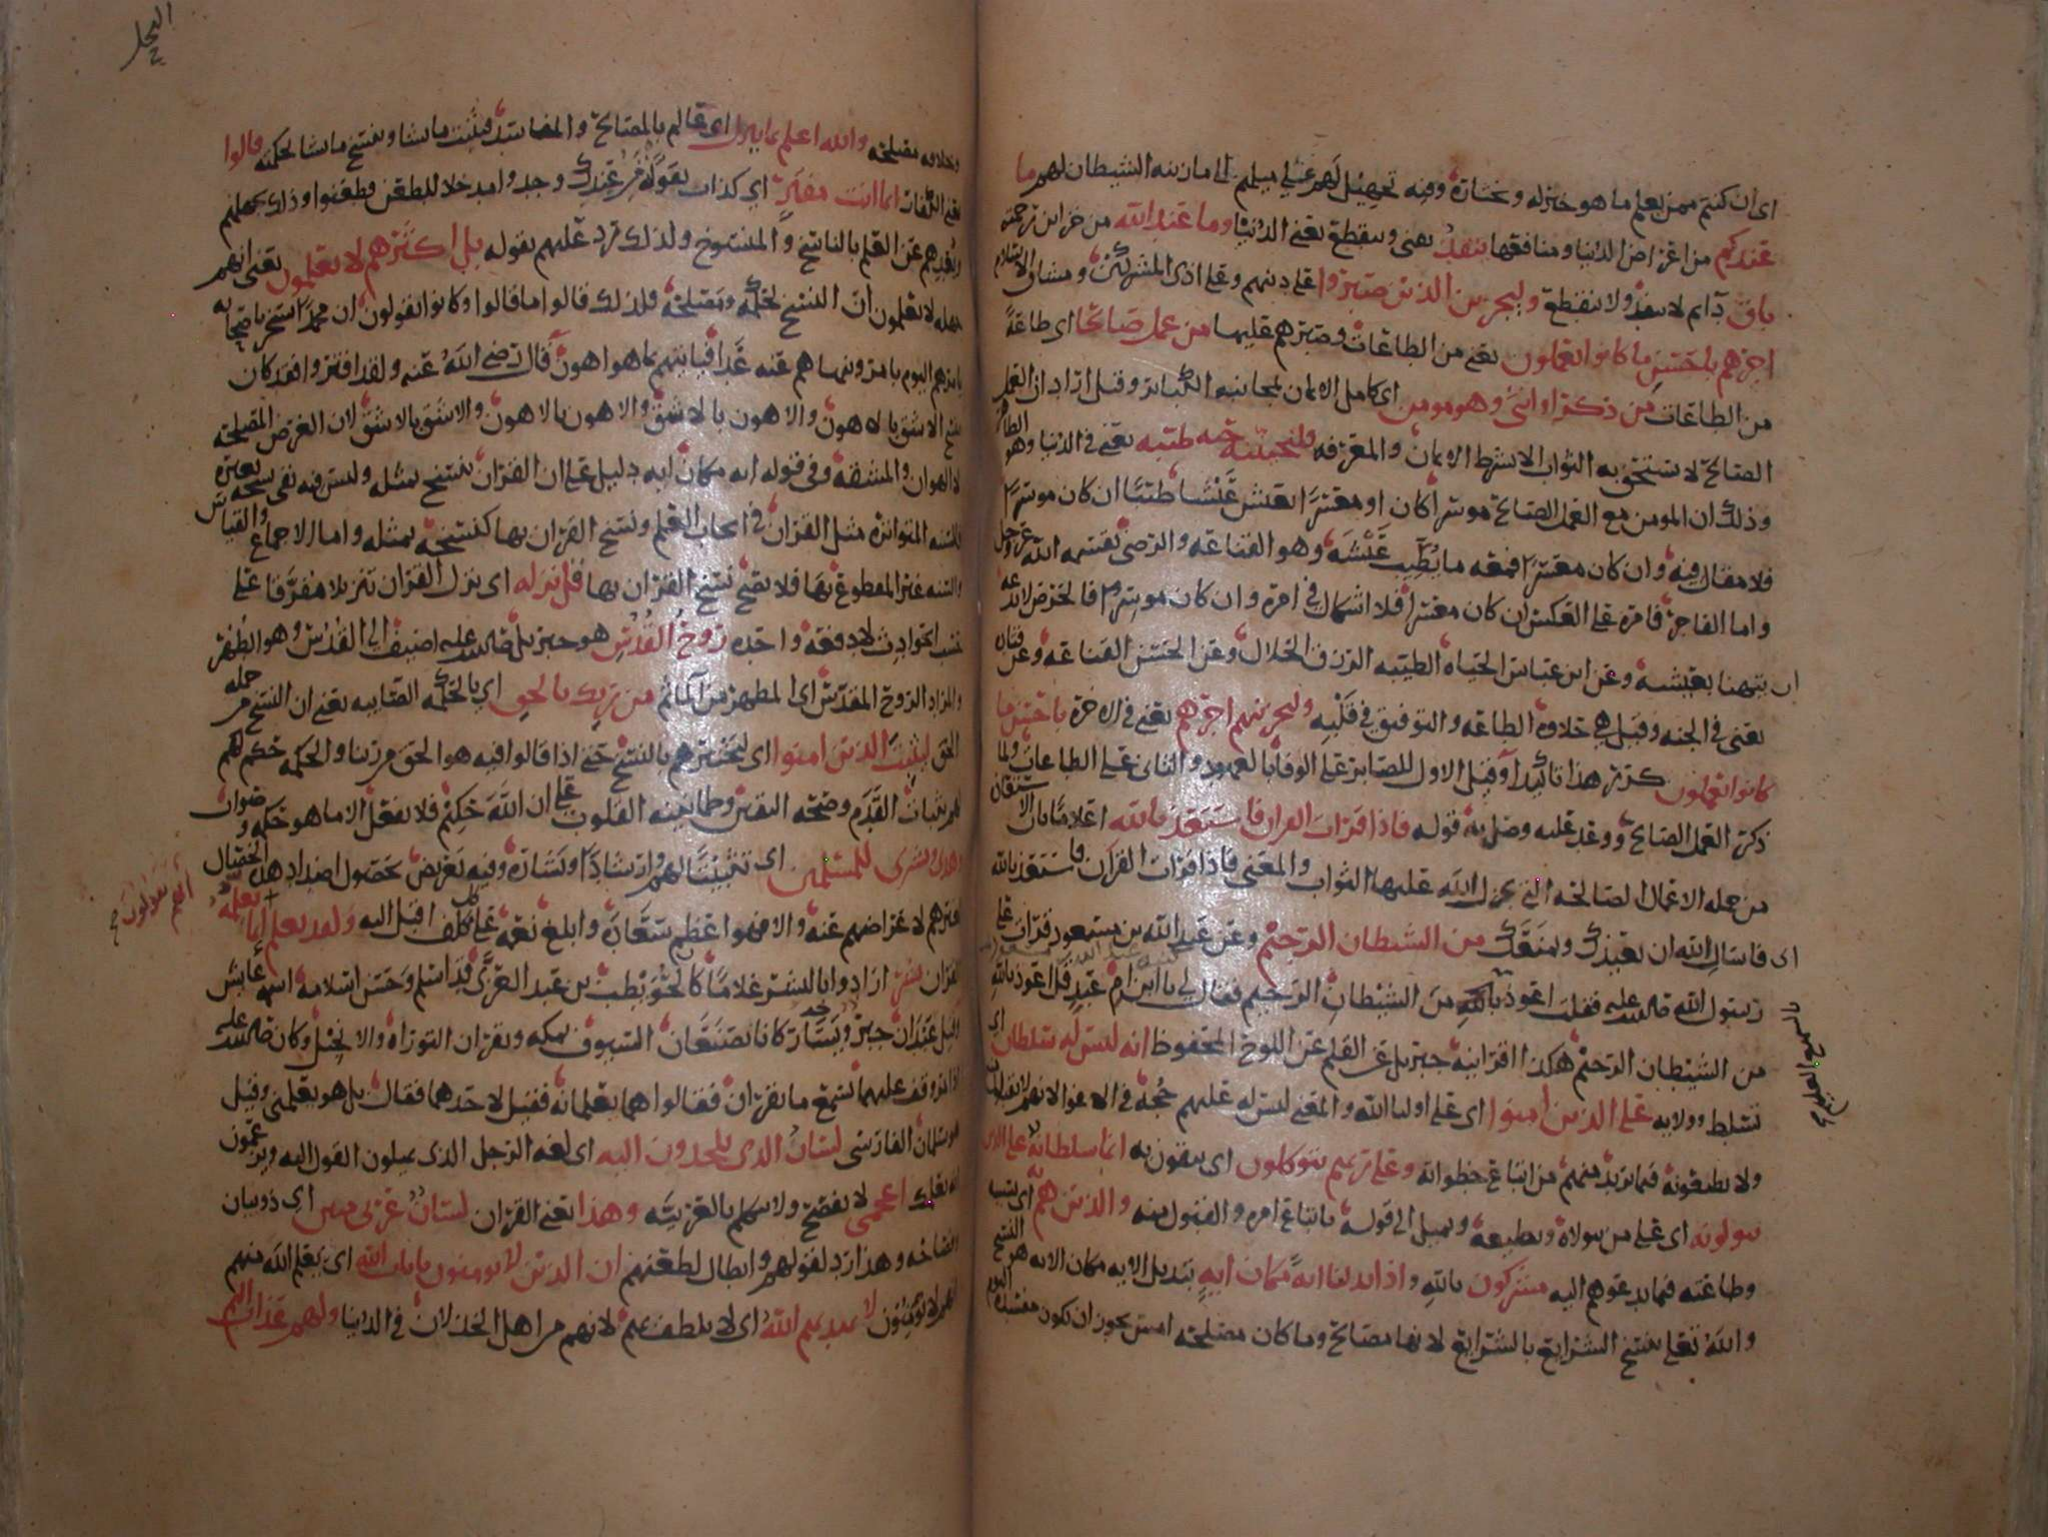 اى ان كنتم ممن يعلم ما هو خير له ومختاره وفيه تجهيل لهم على ميلهم الى ما زينه الشيطان لهم ما
عندكم من اعراض الدنيا ومنافعها ينفد يفنى وينقطع يعنى الدنيا وما عند الله من خزاين رحمته
باق دايم لا ينفد ولا ينقطع وليجزين الذين صبروا على دينهم وعلى اذى المشركين ومشاق الاسلام
اجرهم باحسن ما كانوا يعملون يعنى من الطاعات وصبرهم عليها من عمل صالحا اى طاعة
من الطاعات من ذكر او انثى وهو مومن اى كامل الايمان بمجانبه الكباير وقيل اراد ان العمل
الصالح لا يستحق به الثواب الا بشرط الايمان والمعرفه فلنحيينه حيوه طيبه يعنى فى الدنيا وهو الظاهر
وذلك ان المومن مع العمل الصالح موسرا كان او معسرا يعيش عيشا طيبا ان كان موسرا
فلا مقال فيه وان كان معسرا فمعه ما يطيب عيشه وهو القناعه والرضى بقسمه الله عز وجل
واما الفاجر فامره على العكس ان كان معسرا فلا اشكال فى امره وان كان موسرا فالحرص لا يدعه
ان يتهنا بعيشه وعن ابن عباس الحياه الطيبه الرزق الحلال وعن الحسن القناعه وعن قتاده
يعنى فى الجنه وقيل هى حلاوة الطاعه والتوفيق فى قلبه ولنجزينهم اجرهم يعنى فى الاخرة باحسن ما
كانوا يعملون كرر هذا تاكيدا وقيل الاول للصابر على الوفا بالعهود والثانى على الطاعات ولما
ذكر العمل الصالح ووعد عليه وصل به قوله فاذا قرات القران فاستعذ بالله اعلاما بان الاستعاذة
من جمله الاعمال الصالحه التى يجزل الله عليها الثواب والمعنى فاذا قرات القران فاستعذ بالله
اى فاسال الله ان يعيذك ويمنعك من الشيطان الرجيم وعن عبد الله بن مسعود قرات على
رسول الله صلى الله عليه فقلت اعوذ بالله من الشيطان الرجيم فقال لى يا ابن ام عبد قل اعوذ بالله
بالسميع العليم
من الشيطان الرجيم هكذا اقرانيه جبريل عن القلم عن اللوح المحفوظ انه ليس له سلطان اى
تسلط وولايه على الذين امنوا اى على اوليا الله والمعنى ليس له عليهم حجة فى الاغوا لانهم لا يقبلون
ولا يطيعونه فيما يريد منهم من اتباع خطواته وعلى ربهم يتوكلون اى يثقون به انما سلطانه على الذين
يتولونه اى على من يتولاه ويطيعه ويميل الى قوله باتباع امره والقبول منه والذين هم به اى بسببه
وطاعته فيما يدعوهم اليه مشركون بالله واذا بدلنا اية مكان ايه تبديل الايه مكان الايه هو النسخ
والله تعالى ينسخ الشرايع بالشرايع لانها مصالح وما كان مصلحه امس يجوز ان يكون مفسدة اليوم
النحل
وخلافه مصلحه والله اعلم بما ينزل اى عالم بالمصالح والمفاسد فيثبت ما يشا وينسخ ما يشا لحكمته قالوا
يعنى الكفار انما انت مفتر اى كذاب يقوله من عندك وجدوا مدخلا للطعن فطعنوا وذلك لجهلهم
وبعدهم عن العلم بالناسخ والمنسوخ ولذلك رد عليهم بقوله بل اكثرهم لا يعلمون يعنى انهم
جهله لا يعلمون ان النسخ لحكمة ومصلحة ولذلك قالوا ما قالوا وكانوا يقولون ان محمدا يسخر باصحابه
يامرهم اليوم بامر وينهاهم عنه غدا فياتيهم بما هو اهون قال رضى الله عنه ولقد افتروا فقد كان
ينسخ الاشق بالاهون والاهون بالاشق والاهون بالاهون والاشق بالاشق لان الغرض المصلحه
لا الهوان والمشقه وفى قوله ايه مكان ايه دليل على ان القران ينسخ بمثله وليس فيه نفى نسخه بغيره
فالسنه المتواتره مثل القران فى ايجاب العلم ونسخ القران بها كنسخه بمثله واما الاجماع والقياس
والسنه غير المقطوع بها فلا يصح نسخ القران بها قل نزله اى نزل القران تنزيلا مفرقا على
حسب الحوادث لا دفعة واحده روح القدس هو جبريل صلى الله عليه اضيف الى القدس وهو الطهر
والمراد الروح المقدس اى المطهر من الماثم من ربك بالحق اى بالحكمه الصايبه يعنى ان النسخ من جمله
الحق ليثبت الذين امنوا اى ليختبرهم بالنسخ حتى اذا قالوا فيه هو الحق من ربنا والحكمه حكم لهم
لهم بثبات القدم وصحه اليقين وطمانينه القلوب على ان الله حكيم فلا يفعل الا ما هو حكمة وصواب
وهدى وبشرى للمسلمين اى تثبيتا لهم وارشادا وبشارة وفيه تعريض بحصول اضداد هذه الخصال
لغيرهم لاعراضهم عنه ولقد نعلم انهم يقولون انما يعلمه
القران بشر ارادوا بالبشر غلاما كان لحويطب بن عبد العزى قد اسلم وحسن اسلامه اسمه عايش
وقيل عبدان جبر ويسار كانا يصنعان السيوف بمكه ويقران التوراه والانجيل وكان صلى الله عليه
اذا مر وقف عليهما يسمع ما يقران فقالوا هما يعلمانه فقيل لاحدهما فقال بل هو يعلمنى وقيل
هو سلمان الفارسى لسان الذى يلحدون اليه اى لغه الرجل الذى يميلون القول اليه ويزعمون
انه يعلمك اعجمى لا يفصح ولا يتكلم بالعربيه وهذا يعنى القران لسان عربى مبين اى ذو بيان
وفصاحه وهذا رد لقولهم وابطال لطعنهم ان الذين لا يومنون بايات الله اى يعلم الله منهم
انهم لا يومنون لا يهديهم الله اى لا يلطف بهم لانهم من اهل الخذلان فى الدنيا ولهم عذاب اليم